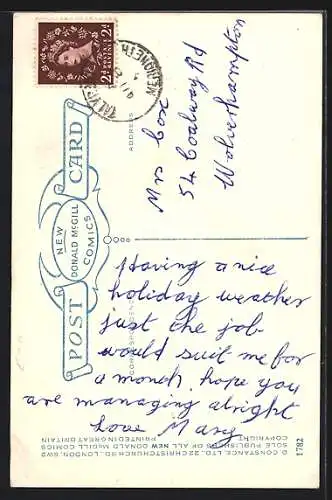 POST CARD
NEW
DONALD McGILL
COMICS
ADDRESS
2D 2D
POSTAGE REVENUE
MERIONETH
Mrs Cox
54 Coalway Rd
Wolverhampton
Having a nice
holiday weather
just the job
would suit me for
a month, hope you
are managing alright
love Mary
CORRESPONDENCE
© D. CONSTANCE LTD., 22 CHRISTCHURCH RD., LONDON, SW2
SOLE PUBLISHERS OF ALL NEW DONALD McGILL COMICS
COPYRIGHT PRINTED IN GREAT BRITAIN
1782